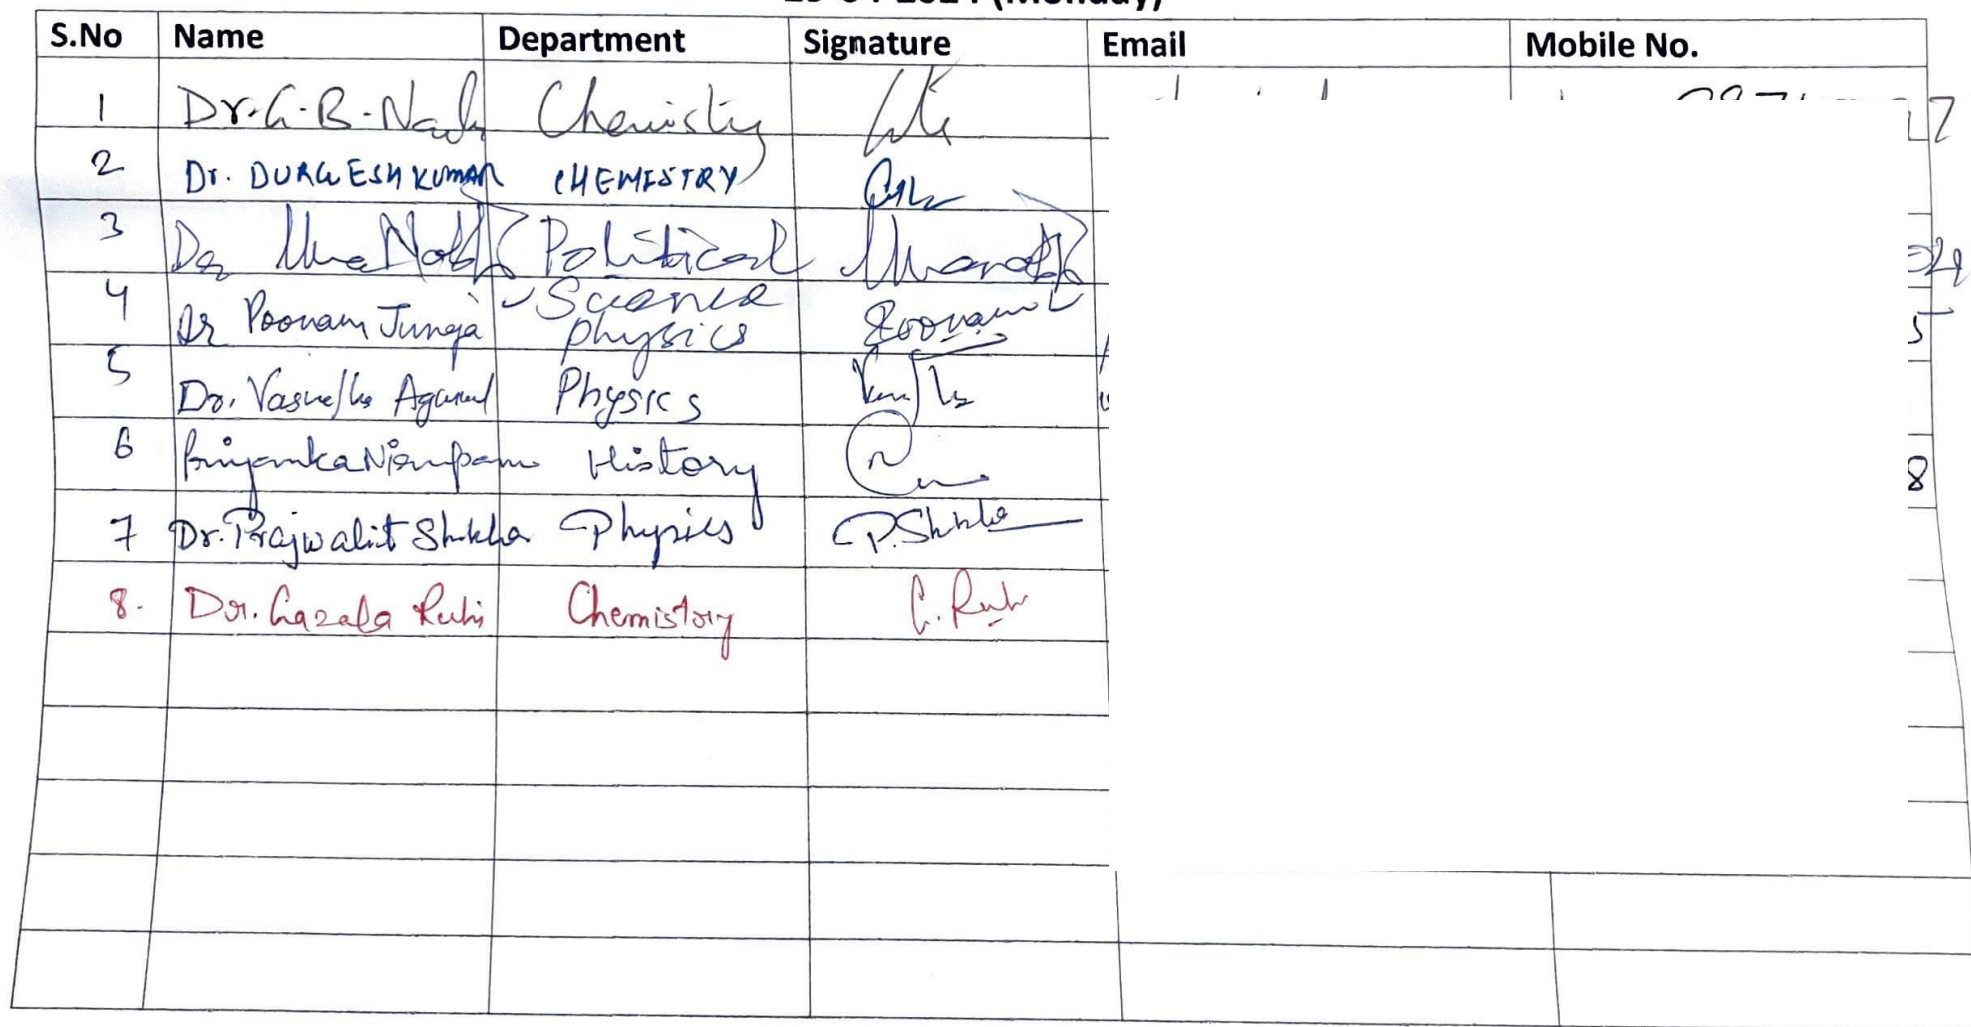 (Monday)
S.No Name Department Signature Email Mobile No.
1 Dr. G. B. Chemistry 7
2 Dr. DURGESH KUMAR CHEMISTRY
3 Political
Science
4 Dr Poonam Juneja Physics Poonam 5
5 Dr. Agarwal Physics
6 Priyanka History 8
7 Dr. Prajwalit Shikha Physics P. Shikha
8. Dr. Gazala Ruhi Chemistry G. Ruhi